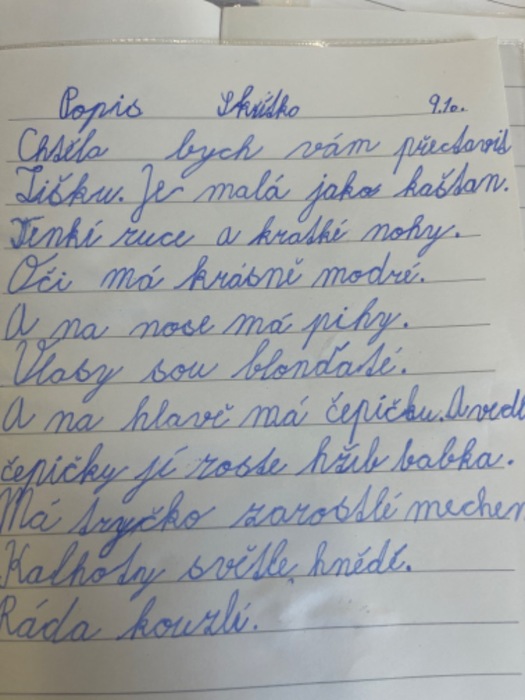 Popis Skřítko 9.10.
Chtěla bych vám přectavit
Lišku. Je malá jako kaštan.
Tenké ruce a kratké nohy.
Oči má krásně modré.
A na nose má pihy.
Vlasy sou blonďaté.
A na hlavě má čepičku. A vedl
čepičky jí roste hřib babka.
Má tryčko zarostlé mechem
Kalhoty světle hnědě.
Ráda kouzlí.